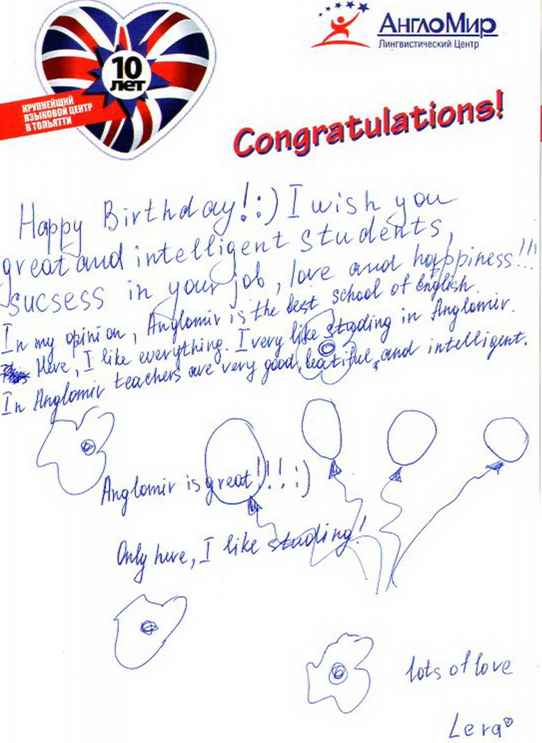 10
лет
КРУПНЕЙШИЙ
ЯЗЫКОВОЙ ЦЕНТР
В ТОЛЬЯТТИ
АнглоМир
Лингвистический Центр
Congratulations!
Happy Birthday!:) I wish you
great and intelligent students,
sucsess in your job, love and happiness!!!
In my opinion, Anglomir is the best school of English.
Here, I like everything. I very like studing in Anglomir.
In Anglomir teachers are very good, beatiful, and intelligent.
Anglomir is great!!!:)
Only here, I like studing!
lots of love
Lera